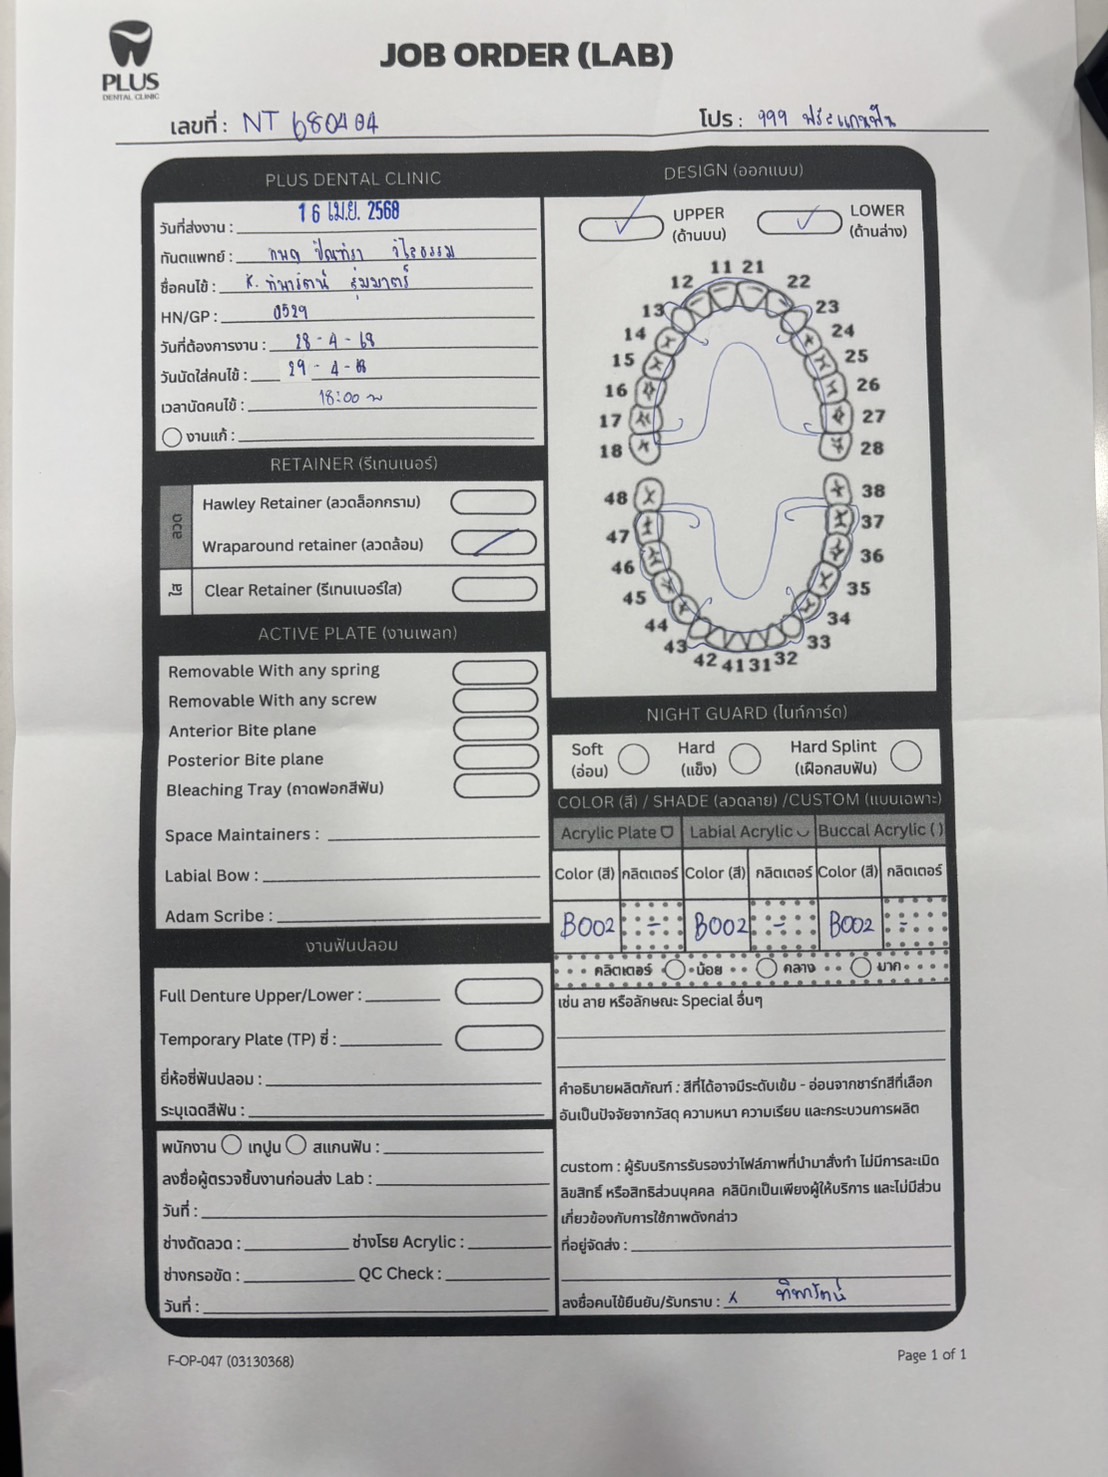 PLUS
DENTAL CLINIC
JOB ORDER (LAB)
เลขที่ : NT 680404
โปร : 999
PLUS DENTAL CLINIC
วันที่ส่งงาน : 16 เม.ย. 2568
ทันตแพทย์ :
ชื่อคนไข้ : K.
HN/GP : 0529
วันที่ต้องการงาน : 28-4-68
วันนัดใส่คนไข้ : 29-4-68
เวลานัดคนไข้ : 18:00 น
งานแก้ :
RETAINER (รีเทนเนอร์)
ลวด
Hawley Retainer (ลวดล็อกกราม)
Wraparound retainer (ลวดล้อม)
ใส
Clear Retainer (รีเทนเนอร์ใส)
ACTIVE PLATE (งานเพลท)
Removable With any spring
Removable With any screw
Anterior Bite plane
Posterior Bite plane
Bleaching Tray (ถาดฟอกสีฟัน)
Space Maintainers :
Labial Bow :
Adam Scribe :
งานฟันปลอม
Full Denture Upper/Lower :
Temporary Plate (TP) ซี่ :
ยี่ห้อซี่ฟันปลอม :
ระบุเฉดสีฟัน :
พนักงาน เทปูน สแกนฟัน :
ลงชื่อผู้ตรวจชิ้นงานก่อนส่ง Lab :
วันที่ :
ช่างดัดลวด : ช่างโรย Acrylic :
ช่างกรอขัด : QC Check :
วันที่ :
DESIGN (ออกแบบ)
UPPER
(ด้านบน)
LOWER
(ด้านล่าง)
11 21
12 22
13 23
14 24
15 25
16 26
17 27
18 28
48 38
47 37
46 36
45 35
44 34
43 33
42 41 31 32
NIGHT GUARD (ไนท์การ์ด)
Soft
(อ่อน)
Hard
(แข็ง)
Hard Splint
(เฝือกสบฟัน)
COLOR (สี) / SHADE (ลวดลาย) /CUSTOM (แบบเฉพาะ)
Acrylic Plate Labial Acrylic Buccal Acrylic ( )
Color (สี) กลิตเตอร์ Color (สี) กลิตเตอร์ Color (สี) กลิตเตอร์
B002 - B002 - B002 -
กลิตเตอร์ น้อย กลาง มาก
เช่น ลาย หรือลักษณะ Special อื่นๆ
คำอธิบายผลิตภัณฑ์ : สีที่ได้อาจมีระดับเข้ม - อ่อนจากชาร์ทสีที่เลือก
อันเป็นปัจจัยจากวัสดุ ความหนา ความเรียบ และกระบวนการผลิต
custom : ผู้รับบริการรับรองว่าไฟล์ภาพที่นำมาสั่งทำ ไม่มีการละเมิด
ลิขสิทธิ์ หรือสิทธิส่วนบุคคล คลินิกเป็นเพียงผู้ให้บริการ และไม่มีส่วน
เกี่ยวข้องกับการใช้ภาพดังกล่าว
ที่อยู่จัดส่ง :
ลงชื่อคนไข้ยืนยัน/รับทราบ : x ทิพารัตน์
F-OP-047 (03130368)
Page 1 of 1